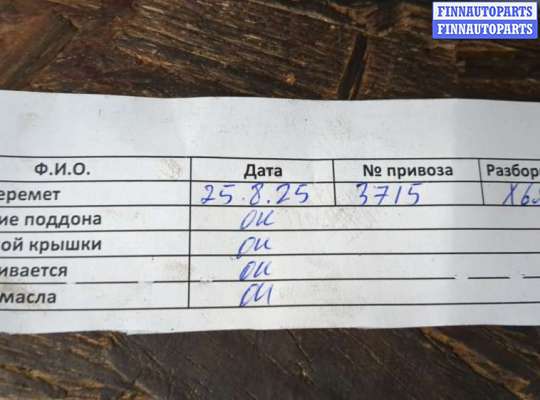 FINNAUTOPARTS
FINNAUTOPARTS
Ф.И.О. Дата № привоза Разбор
еремет 25.8.25 3715
ие поддона ок
ой крышки ок
ивается ок
масла ок